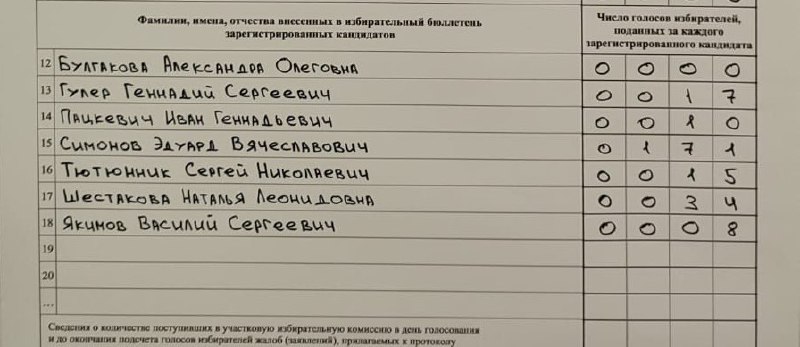 Фамилии, имена, отчества внесенных в избирательный бюллетень
зарегистрированных кандидатов
Число голосов избирателей,
поданных за каждого
зарегистрированного кандидата
12 Булгакова Александра Олеговна 0 0 0 0
13 Гулер Геннадий Сергеевич 0 0 1 7
14 Пацкевич Иван Геннадьевич 0 0 1 0
15 Симонов Эдуард Вячеславович 0 1 7 1
16 Тютюнник Сергей Николаевич 0 0 1 5
17 Шестакова Наталья Леонидовна 0 0 3 4
18 Якимов Василий Сергеевич 0 0 0 8
19
20
...
Сведения о количестве поступивших в участковую избирательную комиссию в день голосования
и до окончания подсчета голосов избирателей жалоб (заявлений), прилагаемых к протоколу